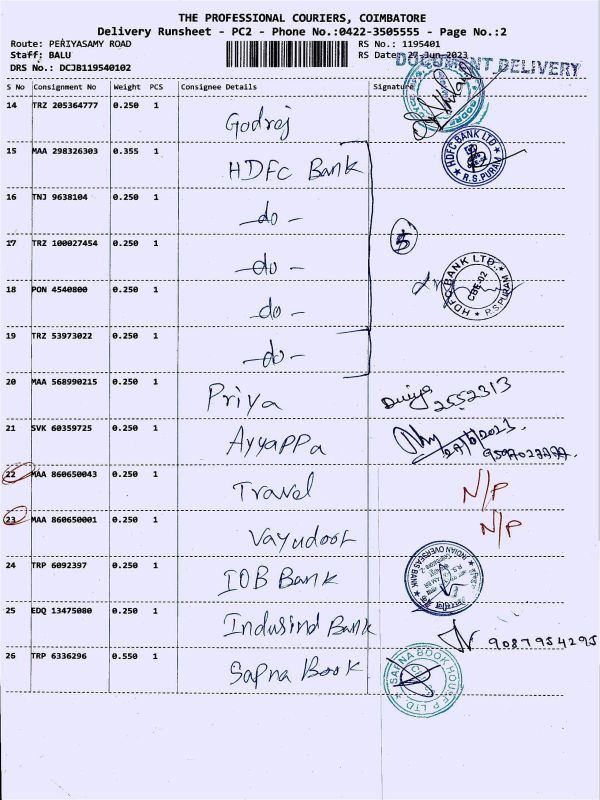 THE PROFESSIONAL COURIERS, COIMBATORE
Delivery Runsheet - PC2 - Phone No.:0422-3505555 - Page No.:2
Route: PERIYASAMY ROAD RS No.: 1195401
Staff: BALU RS Date: 27-Jun-2023
DRS No.: DCJB119540102
DOCUMENT DELIVERY
S No Consignment No Weight PCS Consignee Details Signature
14 TRZ 205364777 0.250 1 Godrej
15 MAA 298326303 0.355 1 HDFC Bank
HDFC BANK LTD
R.S.PURAM
16 TNJ 9638104 0.250 1 -do-
17 TRZ 100027454 0.250 1 -do-
5
18 PON 4540800 0.250 1 -do-
HDFC BANK LTD.
CBE-02
R.S.PURAM
19 TRZ 53973022 0.250 1 -do-
20 MAA 568990215 0.250 1 Priya 2552313
21 SVK 60359725 0.250 1 Ayyappa
22 MAA 860650043 0.250 1 Travel N/P
23 MAA 860650001 0.250 1 Vayudoot N/P
24 TRP 6092397 0.250 1 IOB Bank
INDIAN OVERSEAS BANK
25 EDQ 13475080 0.250 1 Indusind Bank 9087954295
26 TRP 6336296 0.550 1 Sapna Book
SAPNA BOOK HOUSE P LTD.